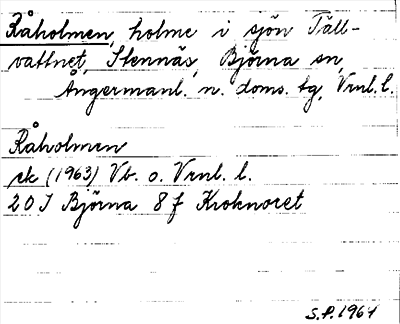 Råholmen, holme i sjön Täll-
vattnet, Stennäs, Björna sn,
Ångermanl. n. doms. tg, Vrnl. l.
Råholmen
ek (1963) Vb. o. Vrnl. l.
20 J Björna 8 f Kroknoret
S.P. 1964